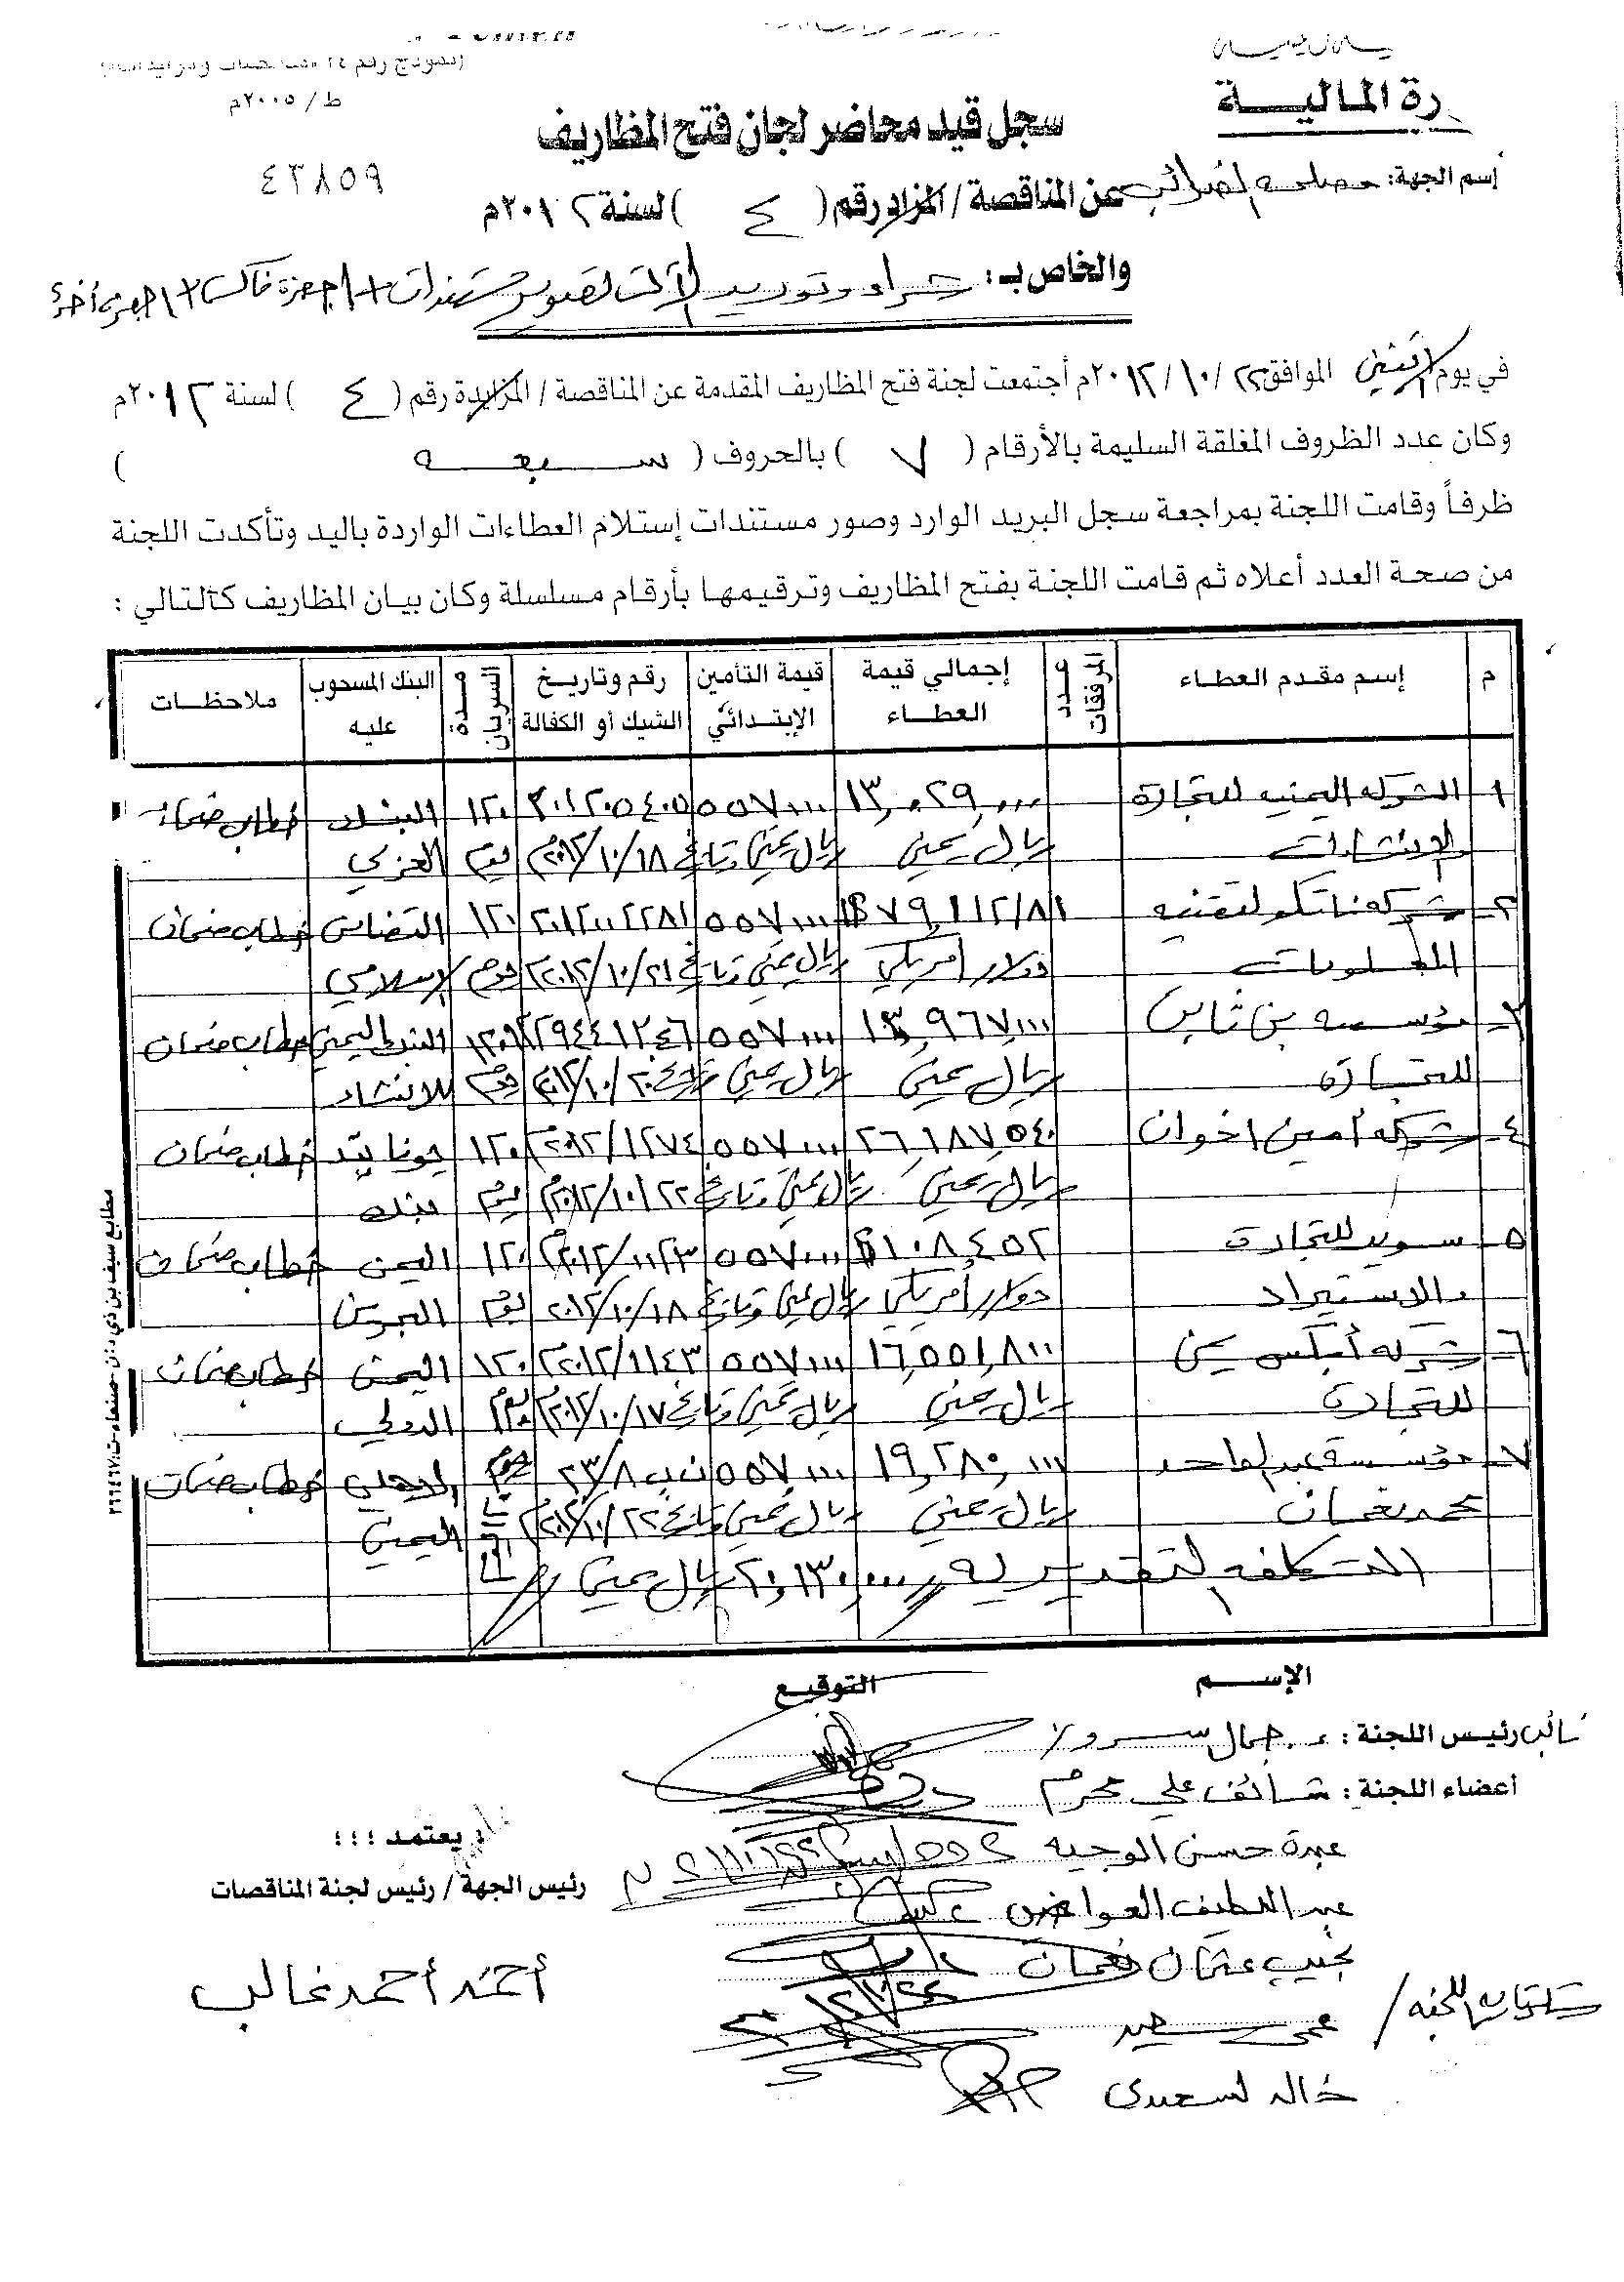 رة المالية
(نموذج رقم ٢٤ مناقصات ومزايدات)
ط/ ٢٠٠٥م
سجل قيد محاضر لجان فتح المظاريف
٤٣٨٥٩
إسم الجهة: مصلحة الضرائب
عن المناقصة / المزاد رقم ( ٤ ) لسنة ٢٠١٢م
والخاص بـ: شراء وتوريد آلات تصوير مستندات + أجهزة فاكس + أجهزة أخرى
في يوم الاثنين الموافق ٢٢/ ١٠/ ٢٠١٢م أجتمعت لجنة فتح المظاريف المقدمة عن المناقصة / المزايدة رقم ( ٤ ) لسنة ٢٠١٢م
وكان عدد الظروف المغلقة السليمة بالأرقام ( ٧ ) بالحروف ( سبعه )
ظرفاً وقامت اللجنة بمراجعة سجل البريد الوارد وصور مستندات إستلام العطاءات الواردة باليد وتأكدت اللجنة
من صحة العدد أعلاه ثم قامت اللجنة بفتح المظاريف وترقيمها بأرقام مسلسلة وكان بيان المظاريف كالتالي :
م إسم مقدم العطاء عدد المرفقات إجمالي قيمة العطاء قيمة التأمين الإبتدائي رقم وتاريخ الشيك أو الكفالة مدة السريان البنك المسحوب عليه ملاحظات
١ الشركه اليمنيه للتجارة ١٣,٠٢٩,٠٠٠ ٥٥٧,٠٠٠ ٢٠١٢٠٥٤٠٥ ١٢٠ البنك خطاب ضمان
والانشاءات ريال يمني ريال يمني وتاريخ ٢٠١٢/١٠/١٨م يوم العربي
٢ شركه ناتكو لتقنيه $٧٩,١١٢/٨١ ٥٥٧,٠٠٠ ٢٠١٢٠٠٢٢٨١ ١٢٠ التضامن خطاب ضمان
المعلومات دولار أمريكي ريال يمني وتاريخ ٢٠١٢/١٠/٢١ يوم الإسلامي
٣ مؤسسه بن ثابت ١٣,٩٦٧,٠٠٠ ٥٥٧,٠٠٠ ٢٩٤٤١٢٤٦ ١٢٠ البنك اليمني خطاب ضمان
للتجارة ريال يمني ريال يمني وتاريخ ٢٠١٢/١٠/٢٠ يوم للانشاء
٤ شركه أمين اخوان ٢٦,١٨٧,٥٤٠ ٥٥٧,٠٠٠ ٢٠١٢/١٢٧٤ ١٢٠ يونايتد خطاب ضمان
ريال يمني ريال يمني وتاريخ ٢٠١٢/١٠/٢٢م يوم بنك
٥ سويد للتجارة $١٠٨,٤٥٢ ٥٥٧,٠٠٠ ٢٠١٢/١١٢٣ ١٢٠ اليمن خطاب ضمان
والاستيراد دولار أمريكي ريال يمني وتاريخ ٢٠١٢/١٠/١٨ يوم البحرين
٦ شركه أبكس يمن ١٦,٥٥١,٨٠٠ ٥٥٧,٠٠٠ ٢٠١٢/١١٤٣ ١٢٠ اليمن خطاب ضمان
للتجارة ريال يمني ريال يمني وتاريخ ٢٠١٢/١٠/١٧م يوم الدولي
٧ مؤسسة عبدالواحد ١٩,٢٨٠,٠٠٠ ٥٥٧,٠٠٠ ٢٣/٨ الاهلي خطاب ضمان
محمد نعمان ريال يمني ريال يمني وتاريخ ٢٠١٢/١٠/٢٢م اليمني
التكلفه التقديريه ٢٠,١٣٠,٠٠٠ ريال يمني
مطابع سيف بن ذي يزن - صنعاء - ت: ٢٩٩٤٤٩٧
الإســم التوقيع
نائب رئيس اللجنة : د. جمال سرور
أعضاء اللجنة : شائف علي محرم
عبده حسن الوجيه
عبداللطيف العواضي
نجيب عثمان نعمان
سكرتارية اللجنه /
سعيد
خالد السعيدي
يعتمد ؛؛؛
رئيس الجهة / رئيس لجنة المناقصات
أحمد أحمد غالب